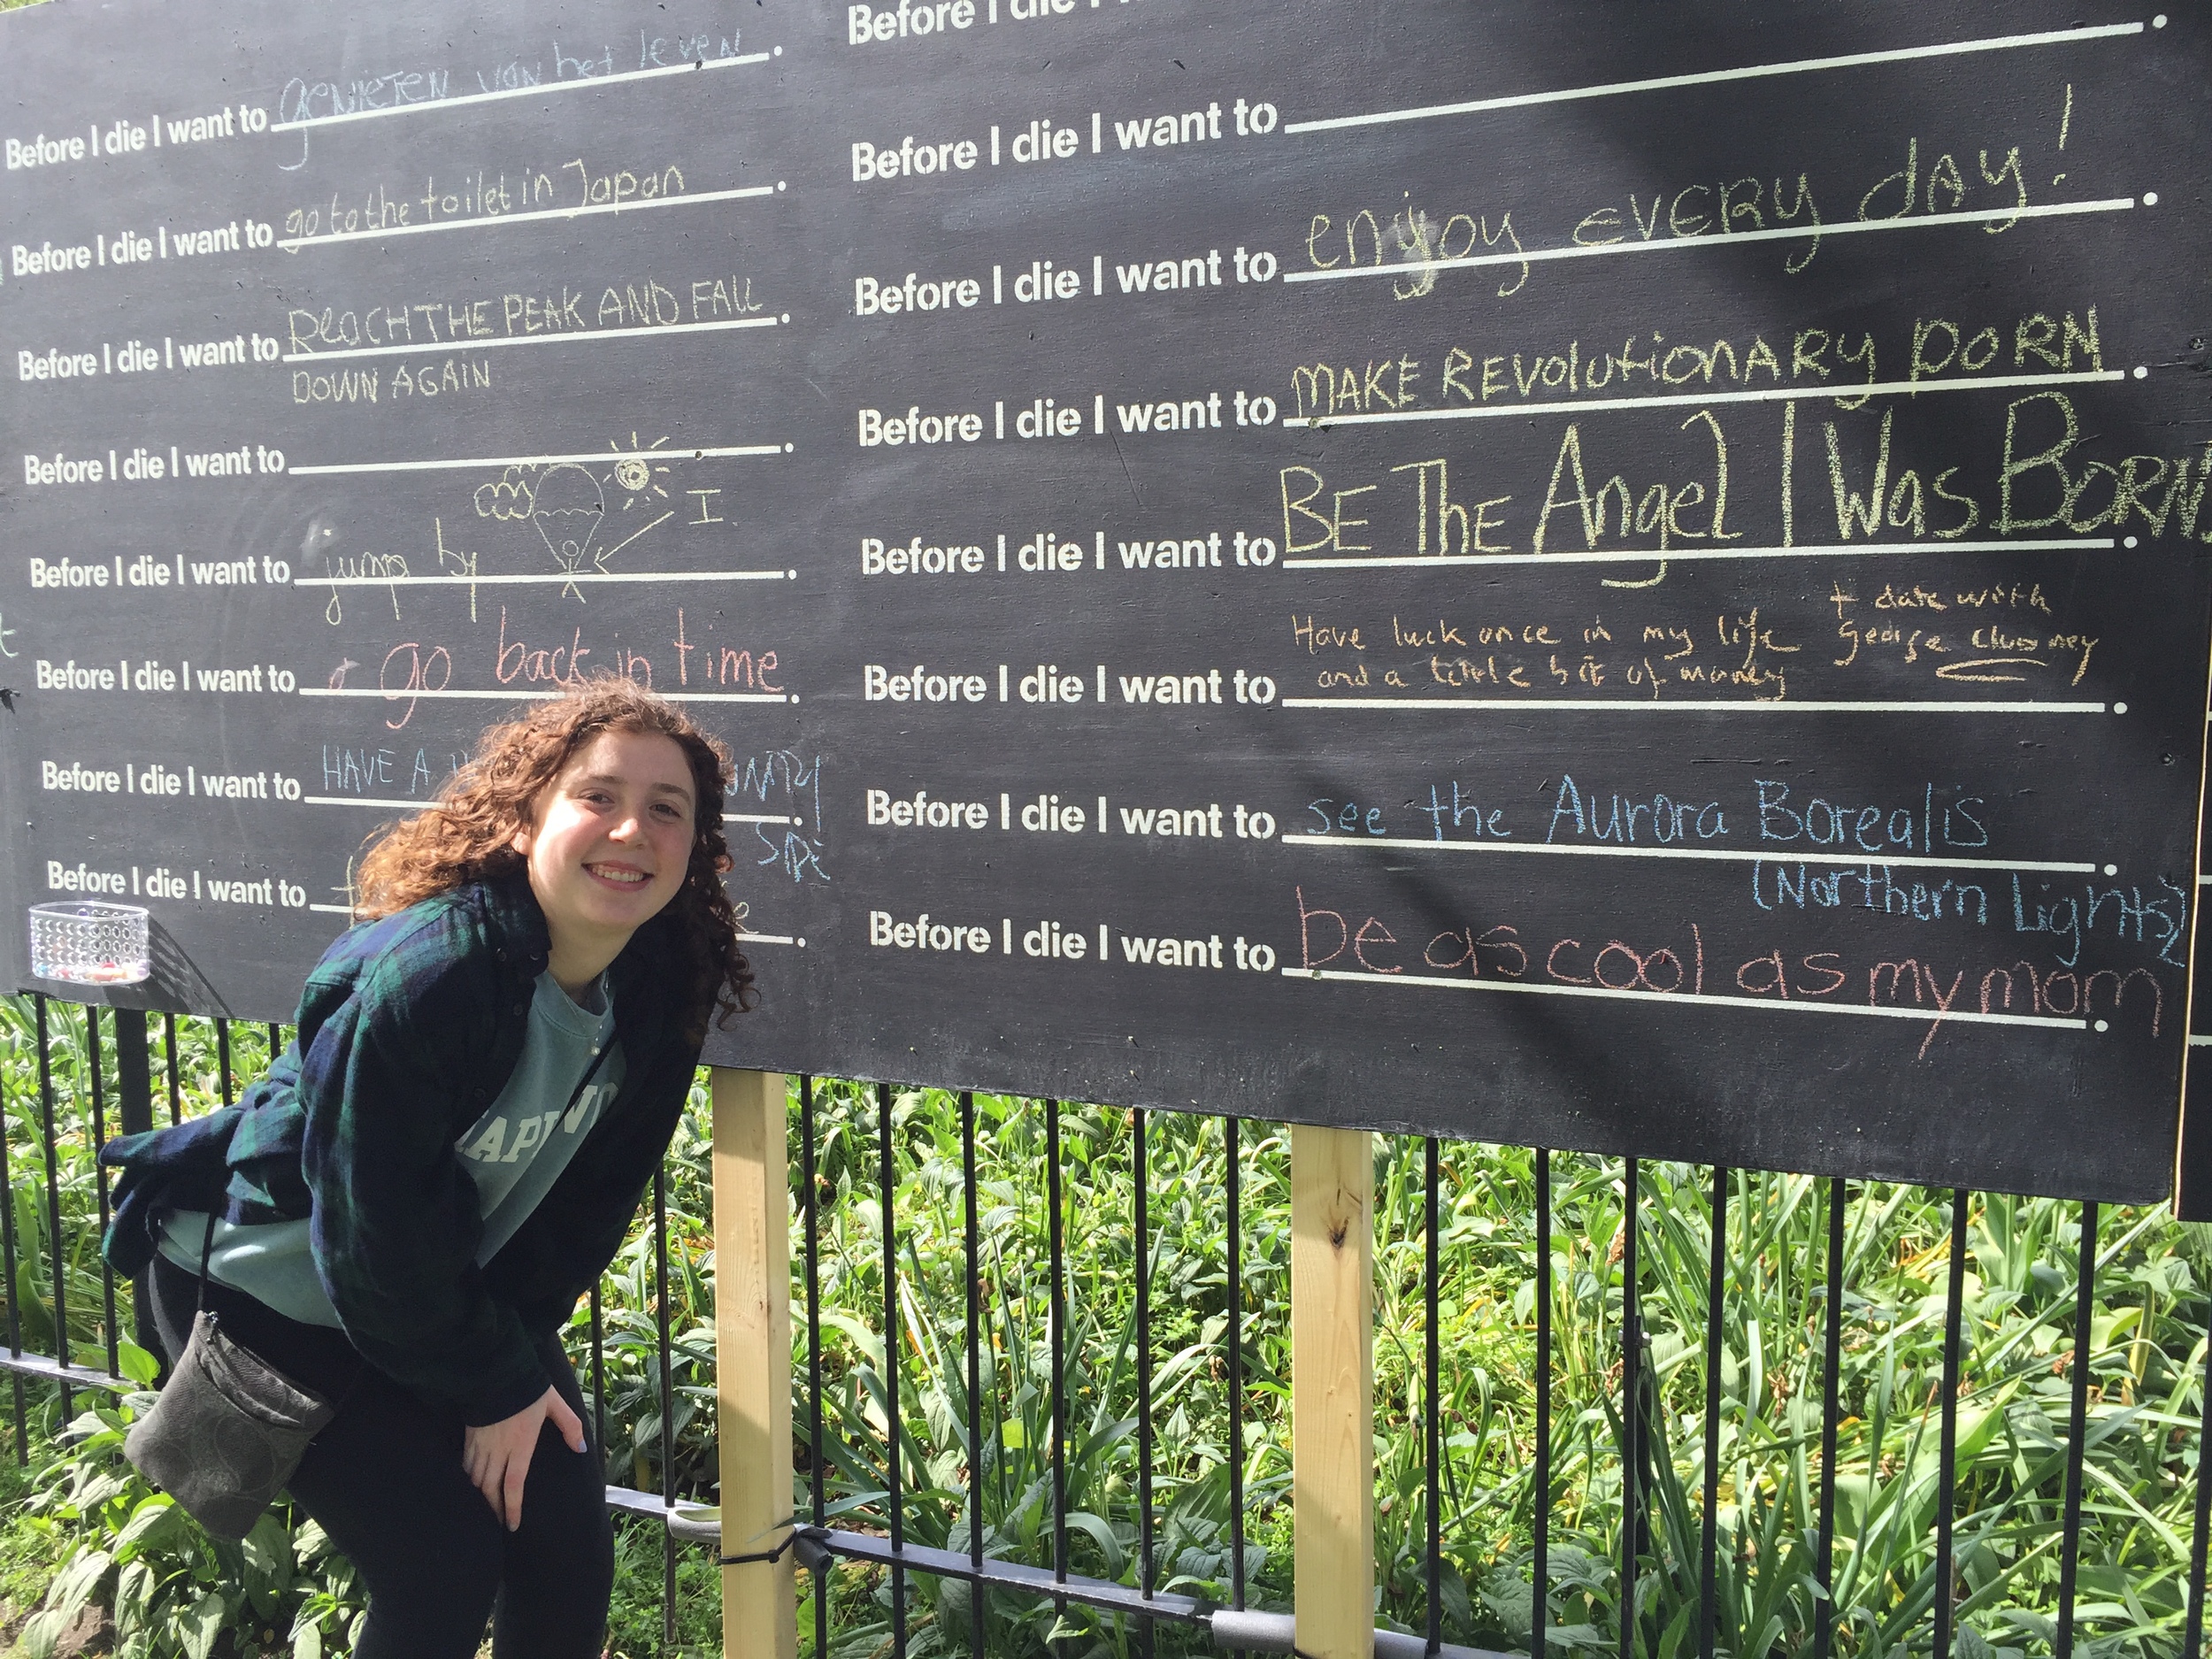 Before I die I want to genieten van het leven.
Before I die I want to go to the toilet in Japan.
Before I die I want to REACH THE PEAK AND FALL.
DOWN AGAIN
Before I die I want to .
I
Before I die I want to jump by .
Before I die I want to go back in time.
Before I die I want to HAVE A .
Before I die I want to .
Before I die I
Before I die I want to .
Before I die I want to enjoy EVERY dAy!.
Before I die I want to MAKE REVOlutiONARy PORN.
Before I die I want to BE ThE Angel I Was BORN.
+ date with
Have luck once in my life George Clooney
and a little bit of money
Before I die I want to .
Before I die I want to see the Aurora Borealis.
(Northern Lights)
Before I die I want to be as cool as my mom.